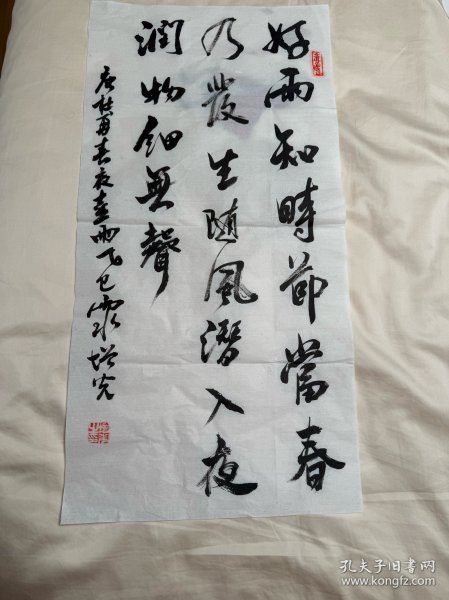 好雨知時節當春
乃發生随風潛入夜
潤物細無聲
唐杜甫春夜喜雨
孔夫子旧书网
www.kongfz.com